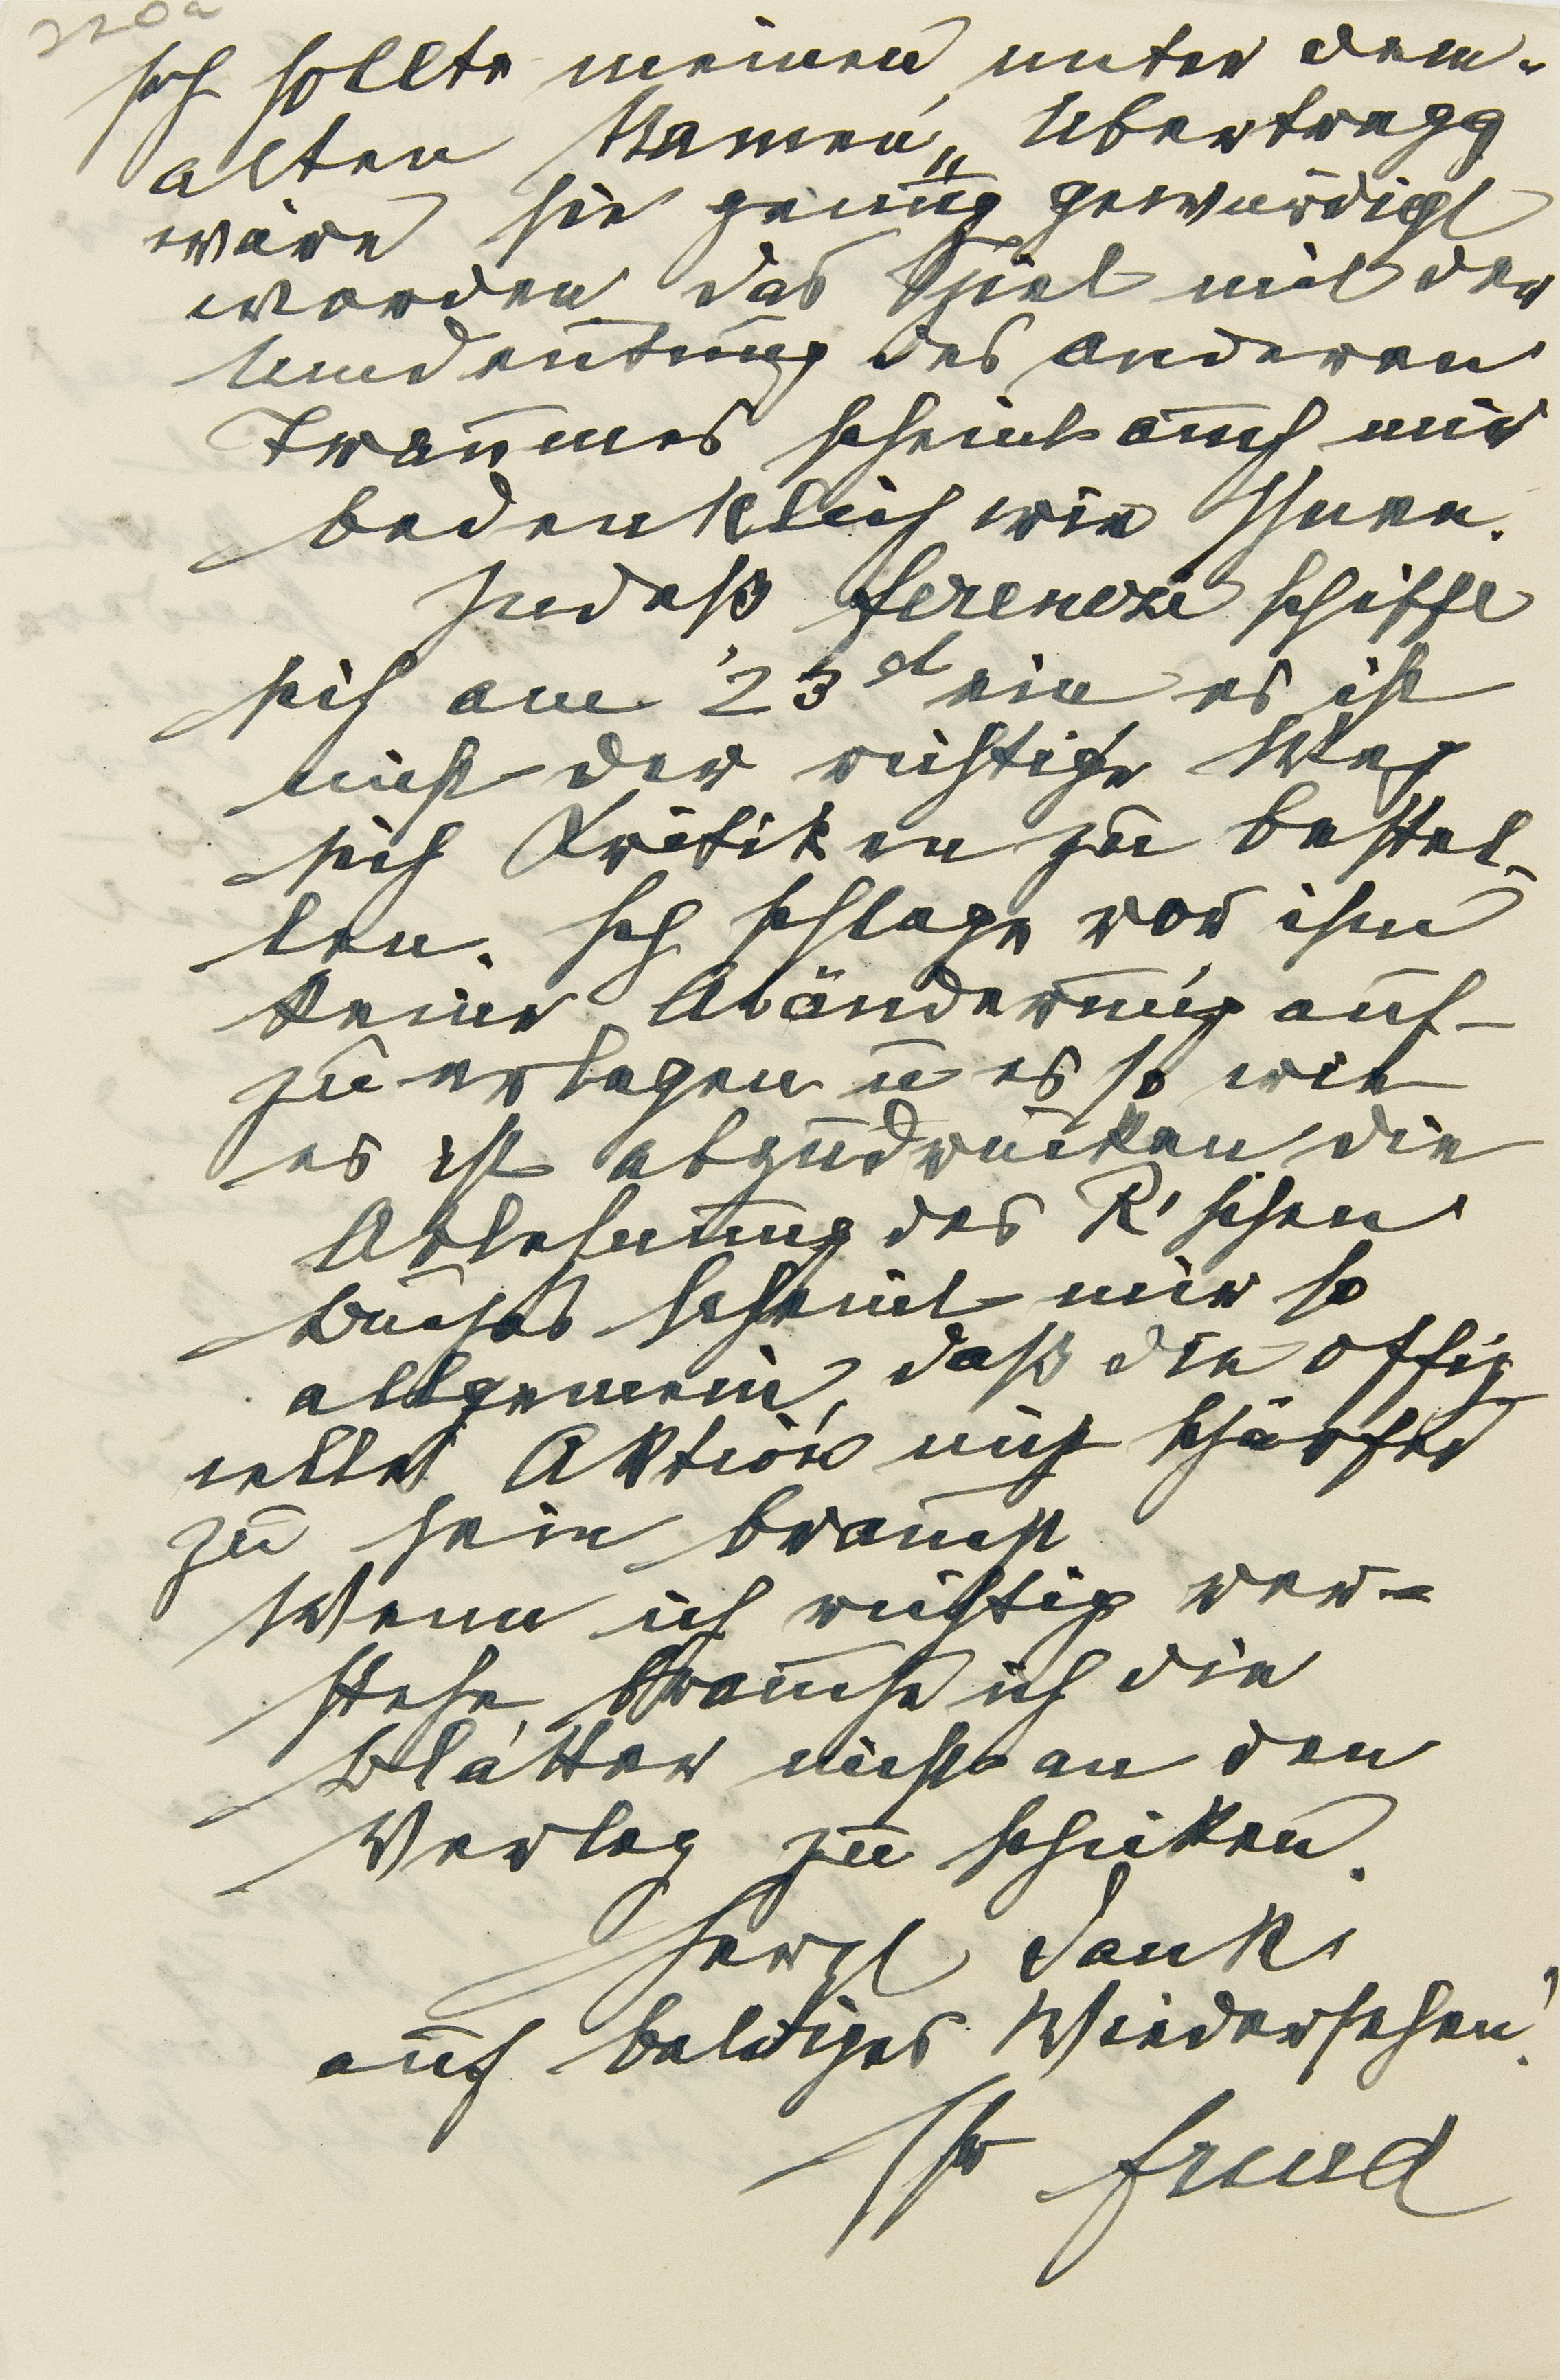 220a
Ich sollte meinen, unter dem
alten Namen „Übertragg
wäre sie genug gewürdigt
worden. das Spiel mit der
Umdeutung des anderen
Traumes scheint auch mir
bedenklich wie Ihnen.
Indeß Ferenczi schifft
sich am 23 st ein es ist
nicht der richtige Weg
sich Kritiken zu bestel-
len. Ich schlage vor ihm
keine Abänderung auf-
zuerlegen u es so wie
es ist abzudrucken die
Ablehnung des R'schen
Buches scheint mir so
allgemein, daß die offiz
ielle Aktion nicht schärfer
zu sein braucht
Wenn ich richtig ver-
stehe, brauche ich die
Blätter nicht an den
Verlag zu schicken.
Herzl Dank.
auf baldiges Wiedersehen!
Ihr Freud